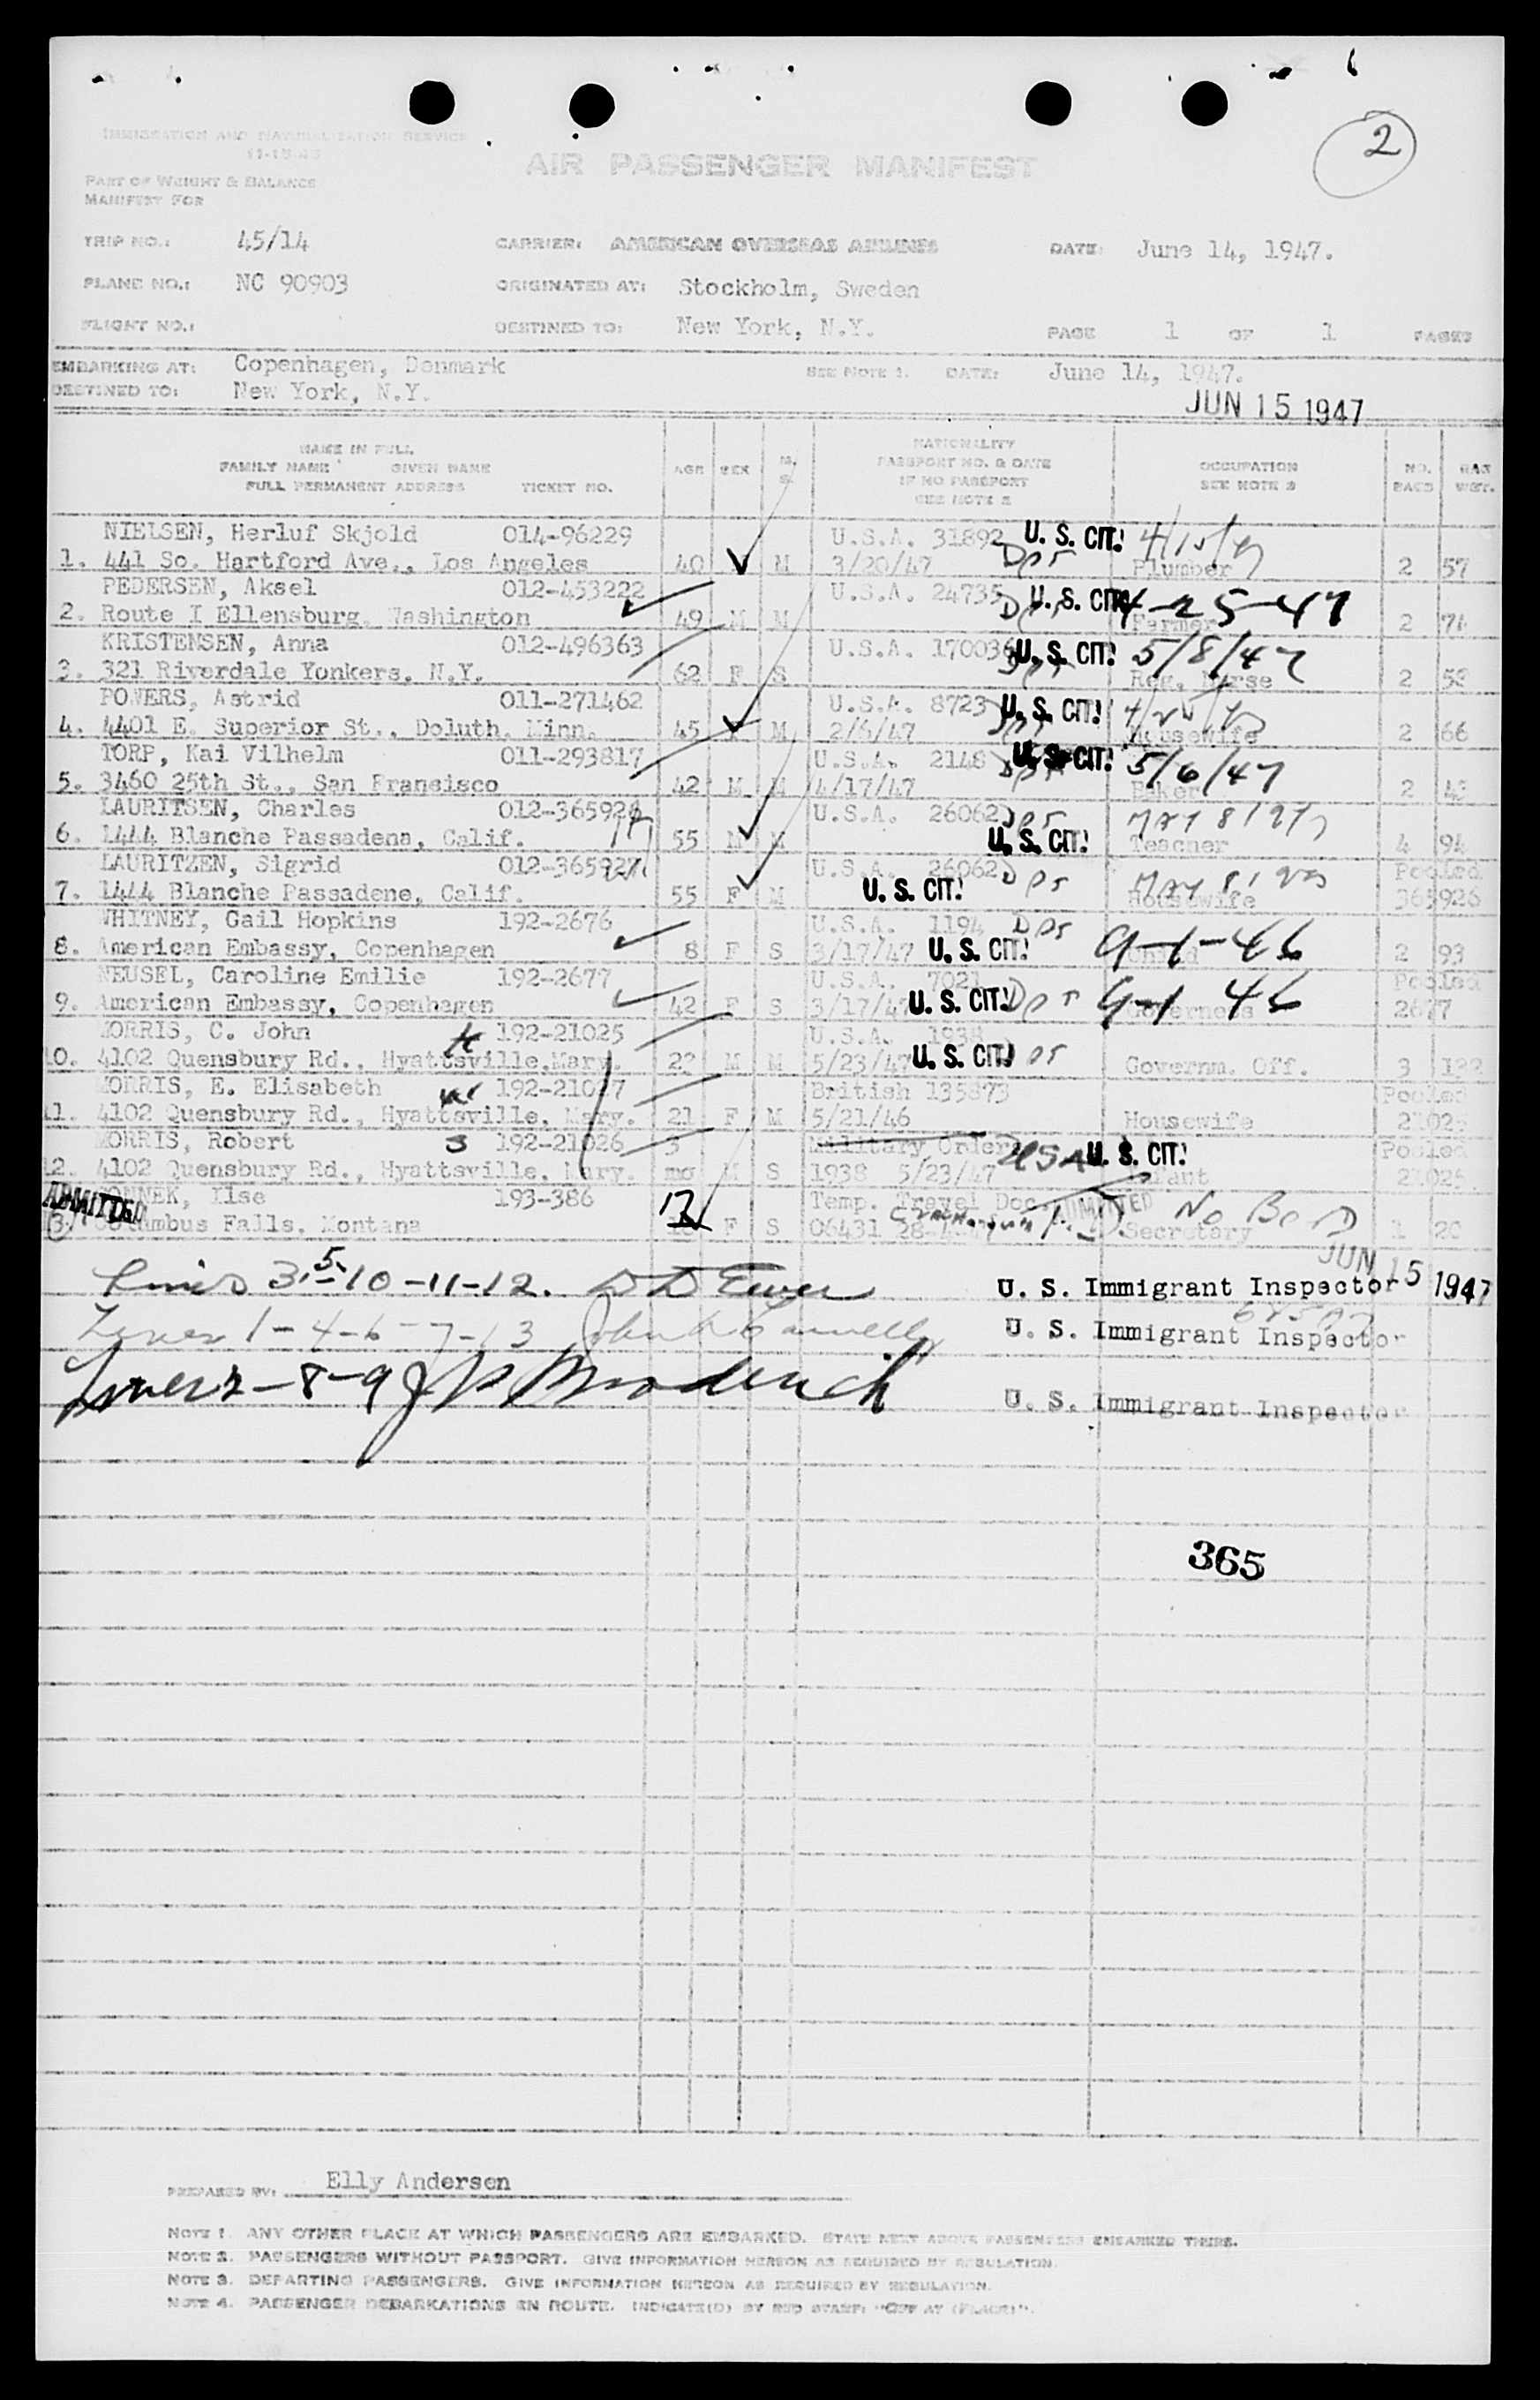 2
IMMIGRATION AND NATURALIZATION SERVICE
AIR PASSENGER MANIFEST
PART OF WEIGHT & BALANCE
MANIFEST FOR
TRIP NO.: 45/14 CARRIER: AMERICAN OVERSEAS AIRLINES DATE: June 14, 1947.
PLANE NO.: NC 90903 ORIGINATED AT: Stockholm, Sweden
FLIGHT NO.: DESTINED TO: New York, N.Y. PAGE 1 OF 1 PAGES
EMBARKING AT: Copenhagen, Denmark SEE NOTE 1. DATE: June 14, 1947.
DESTINED TO: New York, N.Y.
JUN 15 1947
NAME IN FULL NATIONALITY
FAMILY NAME GIVEN NAME AGE SEX M. S. PASSPORT NO. & DATE OCCUPATION NO. BAG
FULL PERMANENT ADDRESS TICKET NO. IF NO PASSPORT SEE NOTE 3 BAGS WGT.
SEE NOTE 2
NIELSEN, Herluf Skjold 014-96229 U.S.A. 31892 U. S. CIT.
1. 441 So. Hartford Ave., Los Angeles 40 M 3/20/47 Dps Plumber 2 57
PEDERSEN, Aksel 012-453222 U.S.A. 24735 Dps U. S. CIT. 4-25-47
2. Route I Ellensburg, Washington 49 M M Farmer 2
KRISTENSEN, Anna 012-496363 U.S.A. 170036 U. S. CIT. 5/8/47
3. 321 Riverdale Yonkers, N.Y. 62 F S Reg. Nurse 2
POWERS, Astrid 011-271462 U.S.A. 8723 U. S. CIT.
4. 4401 E. Superior St., Doluth, Minn. 45 M 2/6/47 Housewife 2 66
TORP, Kai Vilhelm 011-293817 U.S.A. 2148 U. S. CIT. 5/6/47
5. 3460 25th St., San Fransisco 42 M M 4/17/47 Baker 2
LAURITSEN, Charles 012-365926 U.S.A. 26062 Dps
6. 1444 Blanche Passadena, Calif. 55 M M U. S. CIT. Teacher 4 94
LAURITZEN, Sigrid 012-365927 U.S.A. 26062 Dps Pooled
7. 1444 Blanche Passadene, Calif. 55 F M U. S. CIT. Housewife 365926
WHITNEY, Gail Hopkins 192-2676 U.S.A. 1194 Dps 9-1-46
8. American Embassy, Copenhagen 8 F S 3/17/47 U. S. CIT. Child 2 93
NEUSEL, Caroline Emilie 192-2677 U.S.A. 7021 Pooled
9. American Embassy, Copenhagen 42 F S 3/17/47 U. S. CIT. Dps 9-1 46 Governess 2677
MORRIS, C. John 192-21025 U.S.A. 1938
10. 4102 Quensbury Rd., Hyattsville, Mary. 22 M M 5/23/47 U. S. CIT. Dps Governm. Off. 3
MORRIS, E. Elisabeth 192-21027 British 135873 Pooled
11. 4102 Quensbury Rd., Hyattsville, Mary. 21 F M 5/21/46 Housewife 21025
MORRIS, Robert S 192-21026 3 Military Order USA U. S. CIT. Pooled
12. 4102 Quensbury Rd., Hyattsville, Mary. mo M S 1938 5/23/47 Infant 21025
ADMITTED Ilse 193-386 17 Temp. Travel Doc. ADMITTED No Bond
Columbus Falls, Montana F S 06431 Secretary 1 20
JUN 15 1947
Lines 3-5-10-11-12. U. S. Immigrant Inspector
Lines 1-4-6-7-13 U. S. Immigrant Inspector
Lines 2-8-9 U. S. Immigrant Inspector
365
PREPARED BY: Elly Andersen
NOTE 1. ANY OTHER PLACE AT WHICH PASSENGERS ARE EMBARKED. STATE NEXT ABOVE PASSENGERS EMBARKED THERE.
NOTE 2. PASSENGERS WITHOUT PASSPORT. GIVE INFORMATION HEREON AS REQUIRED BY REGULATION.
NOTE 3. DEPARTING PASSENGERS. GIVE INFORMATION HEREON AS REQUIRED BY REGULATION.
NOTE 4. PASSENGER DEBARKATIONS EN ROUTE. INDICATE(D) BY RED STAMP: "OFF AT (PLACE)".